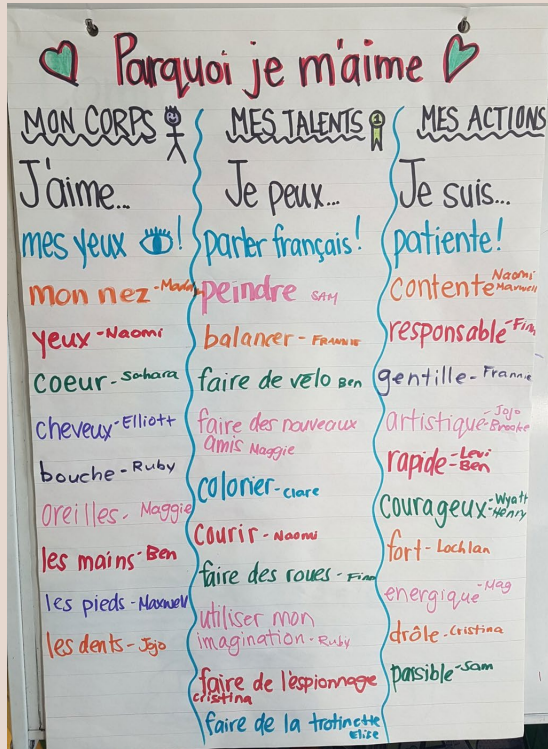 Parquoi je m'aime
MON CORPS
J'aime...
mes yeux !
mon nez -
yeux - Naomi
coeur - Sahara
cheveux - Elliott
bouche - Ruby
oreilles - Maggie
les mains - Ben
les pieds - Maxwell
les dents - Jojo
MES TALENTS
1
Je peux...
parler français!
peindre SAM
balancer - FRANNIE
faire de vélo Ben
faire des nouveaux
amis Maggie
colorier - Clare
courir - Naomi
faire des roues - Finn
utiliser mon
imagination - Ruby
faire de l'espionnage
Cristina
faire de la trotinette
Elise
MES ACTIONS
Je suis...
patiente!
contente Naomi
Maxwell
responsable - Finn
gentille - Frannie
artistique - Jojo
Brooke
rapide - Levi
Ben
courageux - Wyatt
Henry
fort - Lochlan
energique - Mag
drôle - Cristina
paisible - Sam